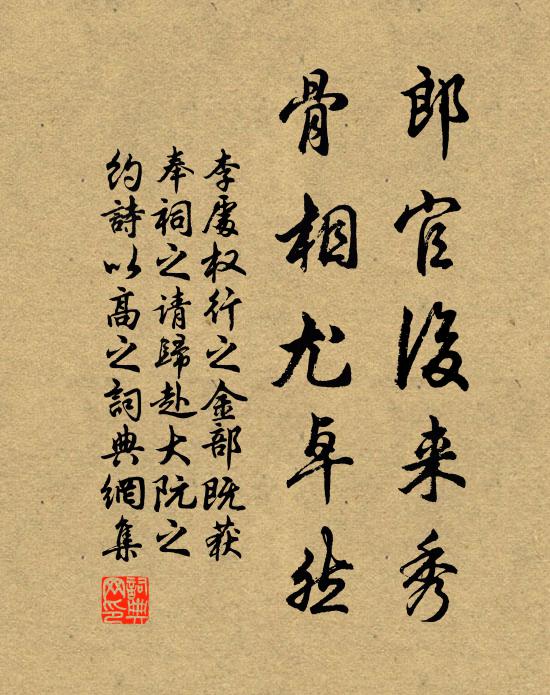 郎官後来秀
骨相尤卓然
李處权行之金部既获
奉祠之请歸赴大阮之
约詩以高之詞典網集
詞典网印